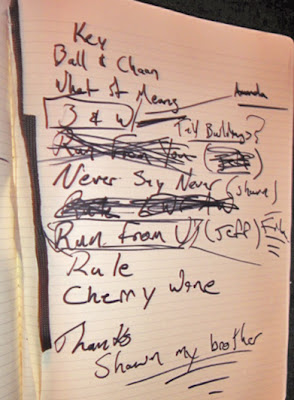 Key
Ball & Chain
What It Means
3 & W Amanda
Tall Buildings?
Run From You
Never Say Never (Shawn)
Run From U (Jeff)
Rule
Cherry Wine
Thanks
Shawn my brother